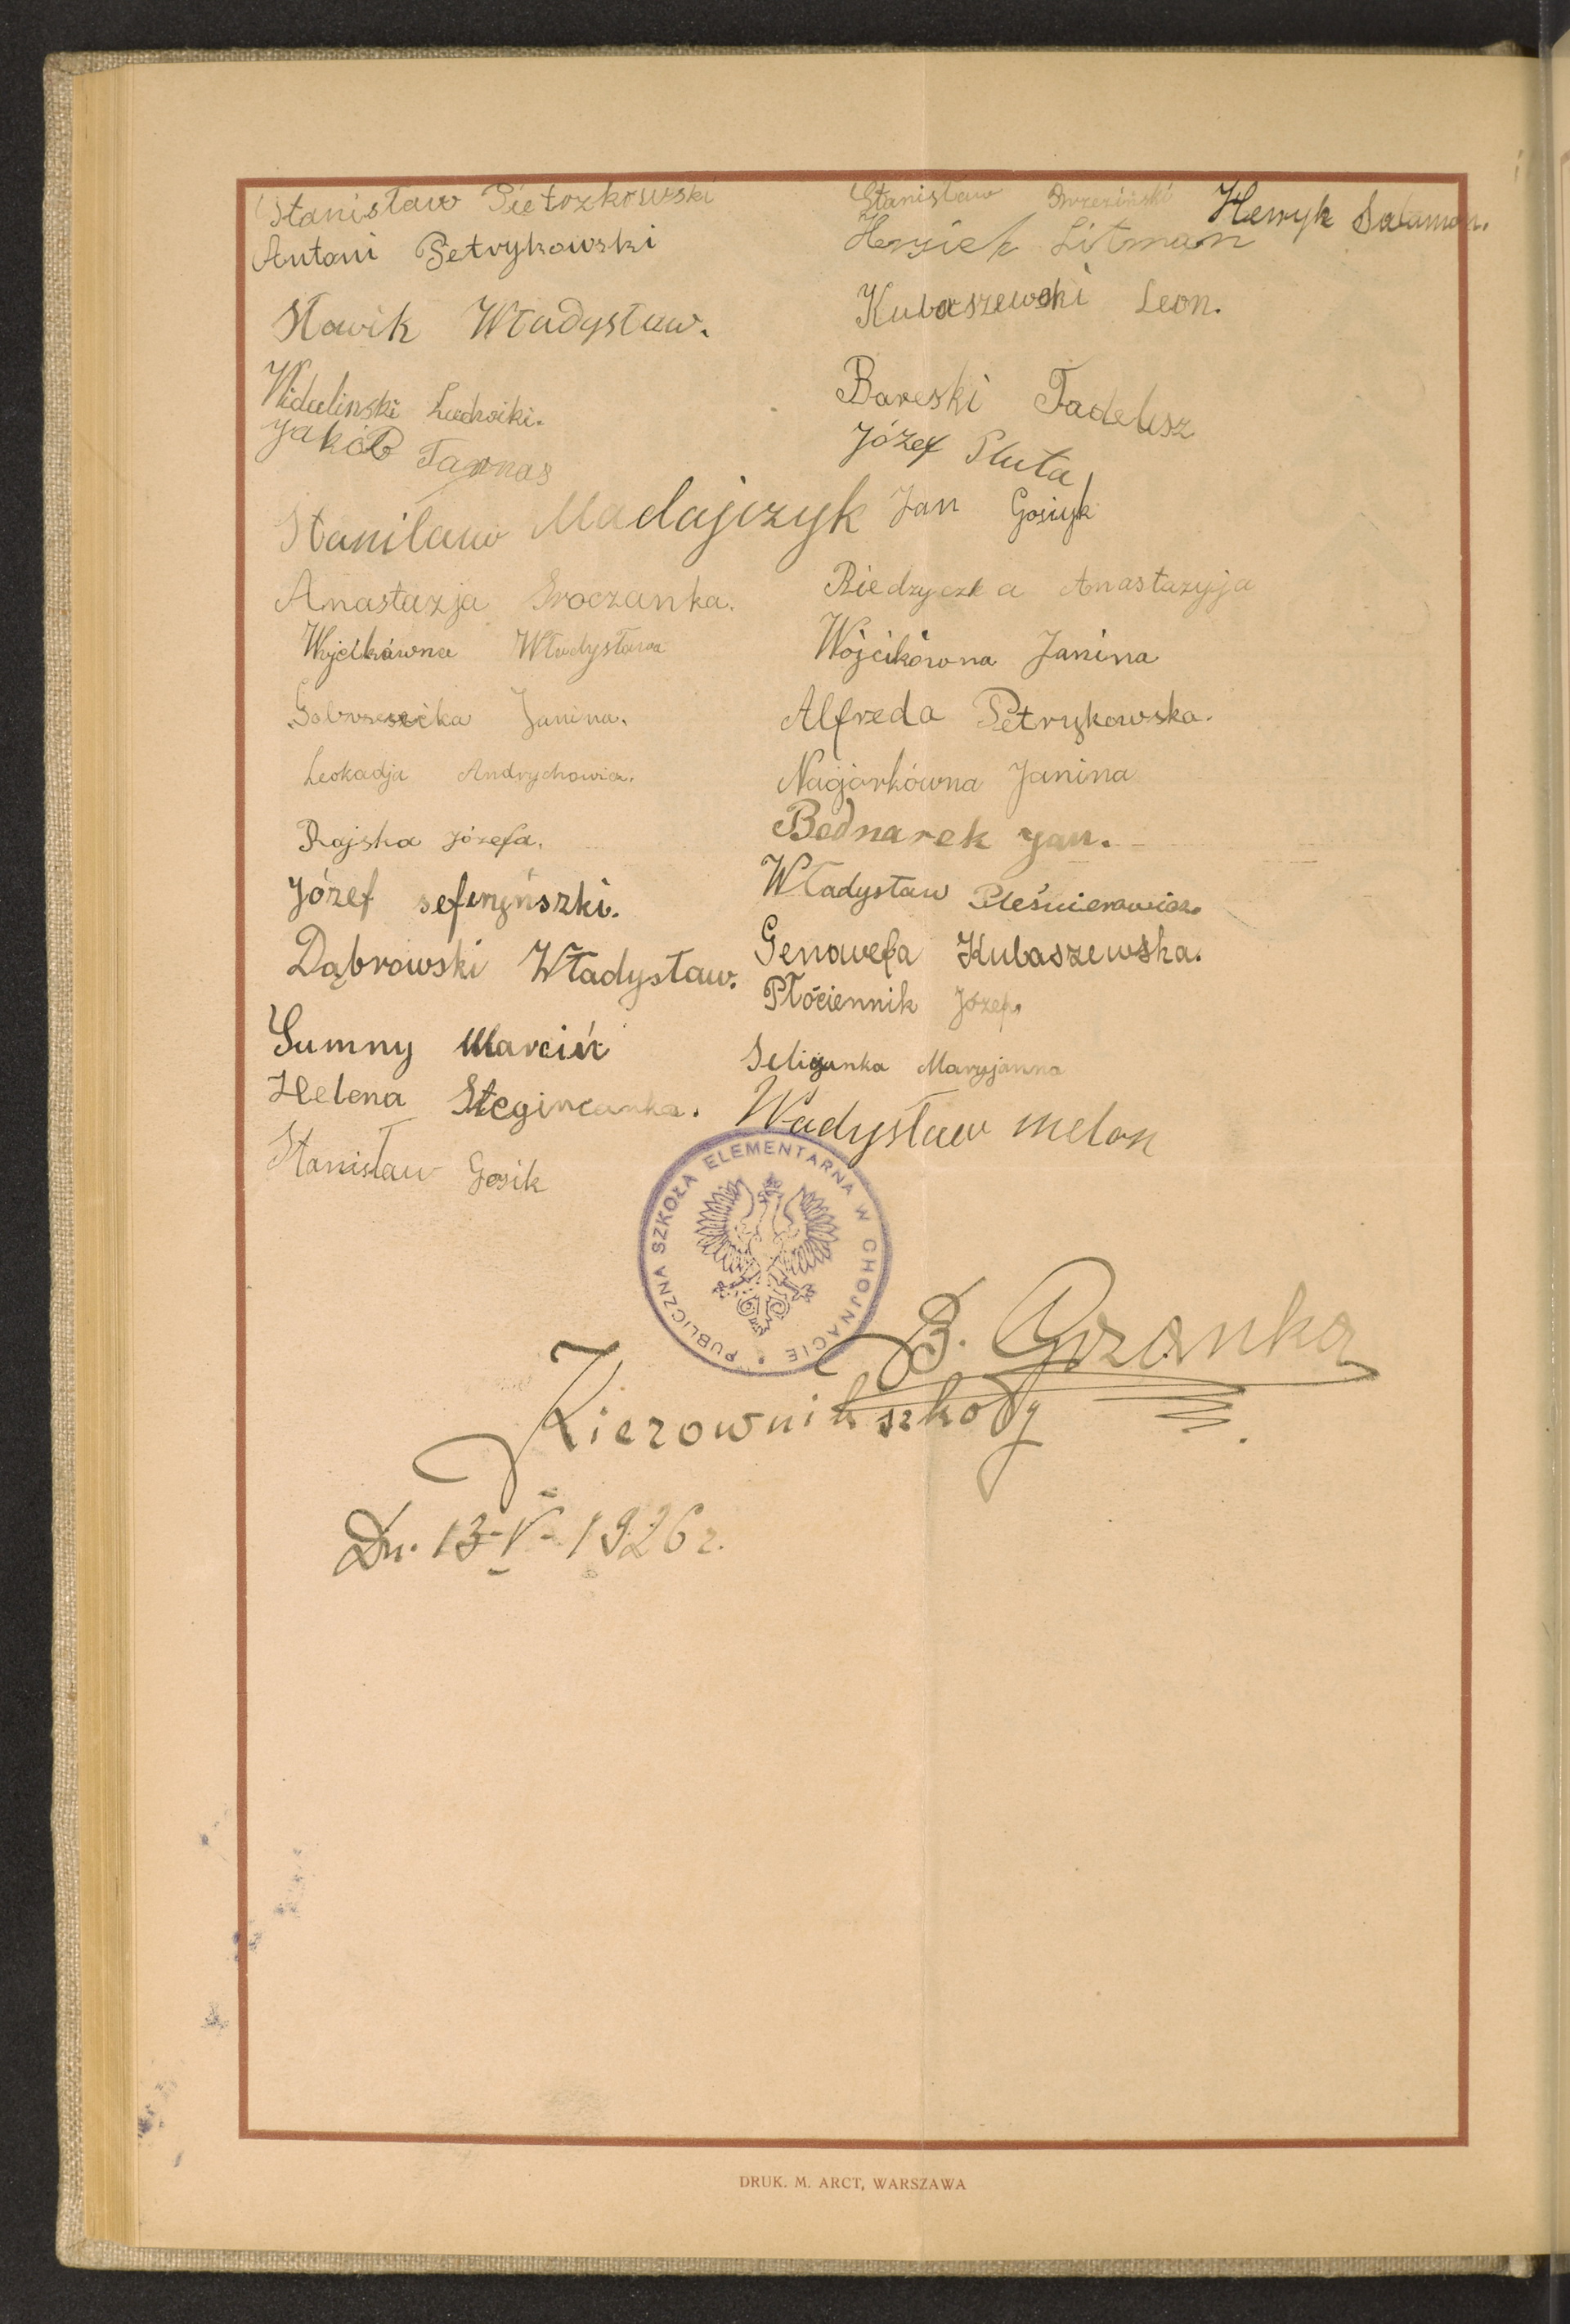 Stanisław Pietrzkowski
Antoni Petrykowski
Słowik Władysław.
Widulinski
Jakób Tarnas
Stanilaw Madajczyk
Anastazja Sroczanka.
Wójcikówna Władysława
Janina.
Leokadja Andrychowicz.
Rajska Józefa.
Józef seferyńszki.
Dąbrowski Władysław.
Sumny Marcin
Helena
Stanisław Gosik
Stanisław Brzeziński
Henryk Salamon.
Litman
Kubaszewski Leon.
Bareski Tadeusz
Józef Pluta
Jan
Biedrzyczka Anastazyja
Wójcikówna Janina
Alfreda Petrykowska.
Nagórkówna Janina
Bednarek Jan.
Władysław Pleśnierowicz.
Genowefa Kubaszewska.
Płóciennik Józef.
Seliganka Maryjanna
Wadysław melon
PUBLICZNA SZKOŁA ELEMENTARNA W CHOJNACIE
B. Grzanka
Kierownik szkoły
Dn. 13-V-1926 r.
DRUK. M. ARCT, WARSZAWA